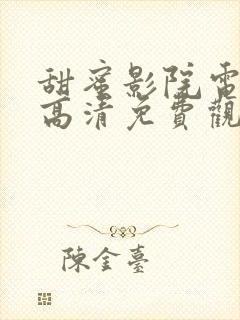 甜蜜影院電
高清免費觀
陳金臺